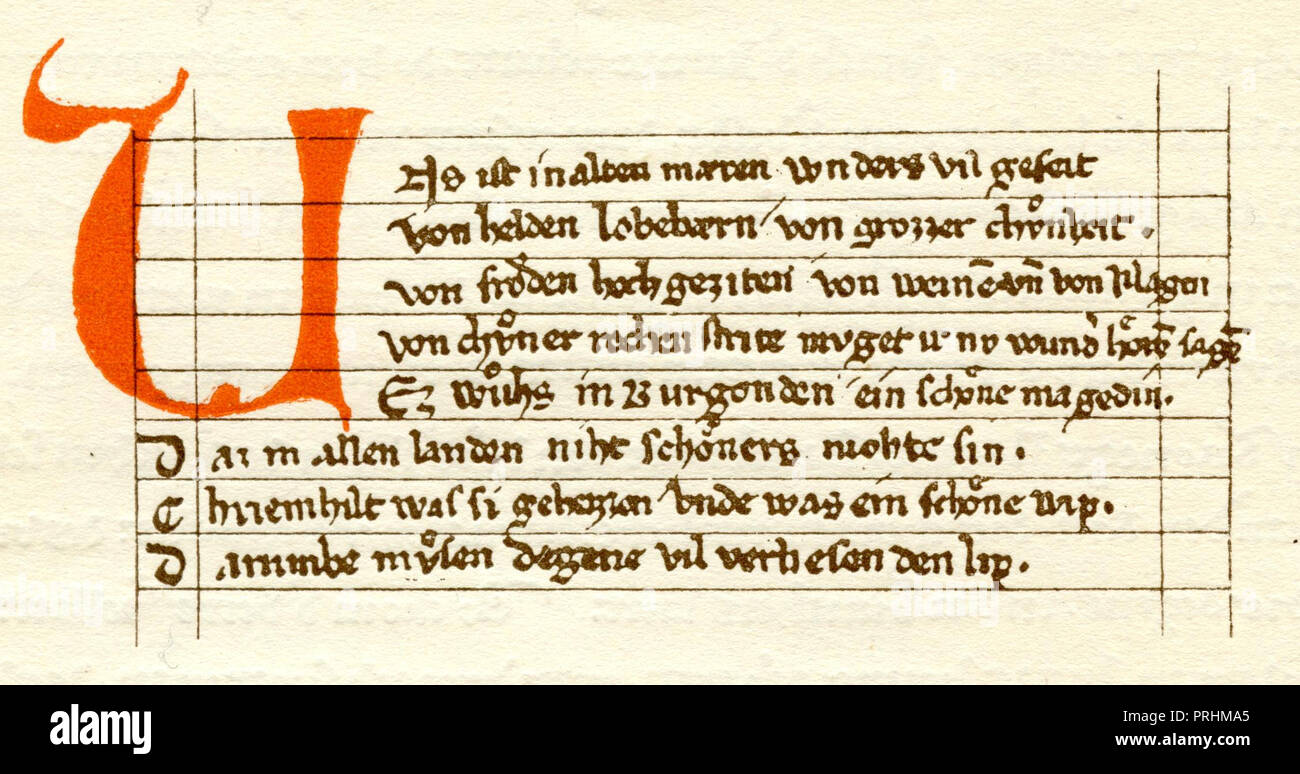 U
Ns ist in alten mæren wnders vil geseit
von helden lobebærn von grozzer chuͦnheit.
von frͦden hochgeziten von weinē vn̄ von klagen
von chuͤner rechen strite mvget ir nv wund̉ hoͤrē sagē
Ez wuͦhs in Burgonden ein schoͤne magedin.
Daz in allen landen niht schoͤners mohte sin.
Chriemhilt was si geheizzen vnde was ein schoͤne wip.
Darumbe mvͤsen degene vil verliesen den lip.
alamy
Image ID: PRHMA5
www.alamy.com